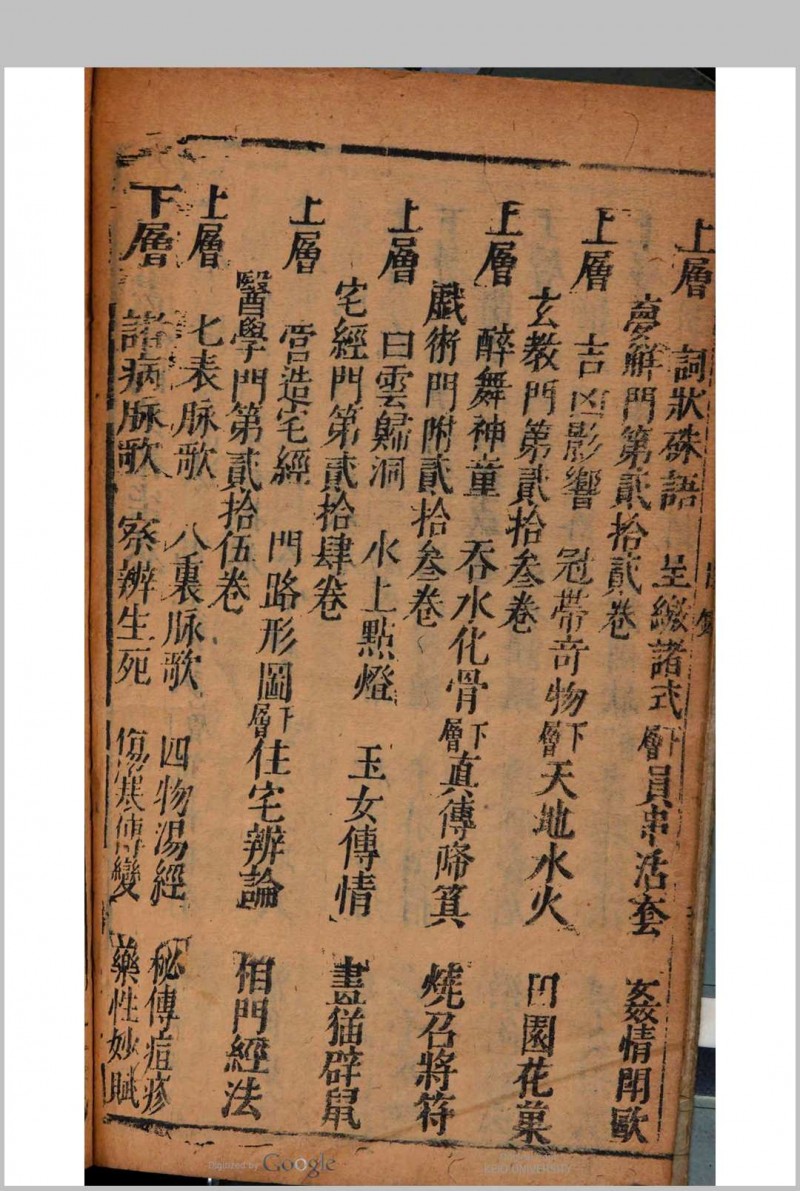 上層 詞狀硃語 呈繳諸式 下層 員串活套 姦情鬪歐
夢解門第貳拾貳卷
上層 吉凶影響 冠帶奇物 下層 天地水火 田園花菓
玄教門第貳拾叁卷
上層 醉舞神童 吞水化骨 下層 真傳啼箕 燒召將符
戲術門附貳拾叁卷
上層 白雲歸洞 水上點燈 玉女傳情 畫猫辟鼠
宅經門第貳拾肆卷
上層 營造宅經 門路形圖 下層 住宅辨論 相門經法
醫學門第貳拾伍卷
上層 七表脉歌 八裏脉歌 四物湯經 秘傳痘疹
下層 諸病脉歌 察辨生死 傷寒傳變 藥性妙賦
Digitized by Google
KEIO UNIVERSITY